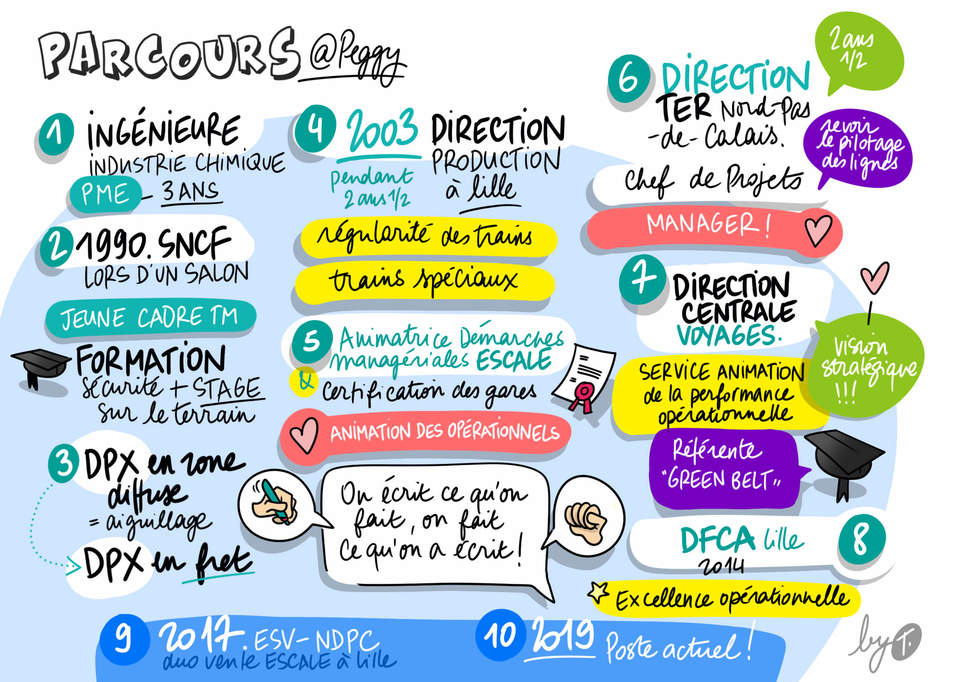 PARCOURS @Peggy
1 INGÉNIEURE
INDUSTRIE CHIMIQUE
PME - 3 ANS
2 1990. SNCF
LORS D'UN SALON
JEUNE CADRE TM
FORMATION
Sécurité + STAGE
sur le terrain
3 DPX en zone
diffuse
= aiguillage
DPX en fret
4 2003 DIRECTION
PRODUCTION
à lille
Pendant
2 ans 1/2
régularité des trains
trains spéciaux
5 Animatrice Démarches
managériales ESCALE
& Certification des gares
ANIMATION DES OPÉRATIONNELS
On écrit ce qu'on
fait, on fait
ce qu'on a écrit !
6 DIRECTION
TER Nord-Pas
-de-Calais.
2 ans
1/2
revoir
le pilotage
des lignes
Chef de Projets
MANAGER !
7 DIRECTION
CENTRALE
VOYAGES.
Vision
stratégique
!!!
SERVICE ANIMATION
de la performance
opérationnelle
Référente
"GREEN BELT"
DFCA lille 8
2014
Excellence opérationnelle
9 2017. ESV-NDPC
duo vente ESCALE à lille
10 2019 Poste actuel !
by T.